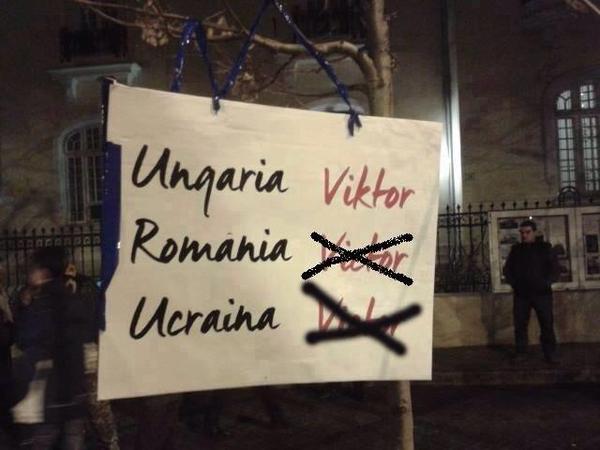 Ungaria Viktor
Romania Victor
Ucraina Victor